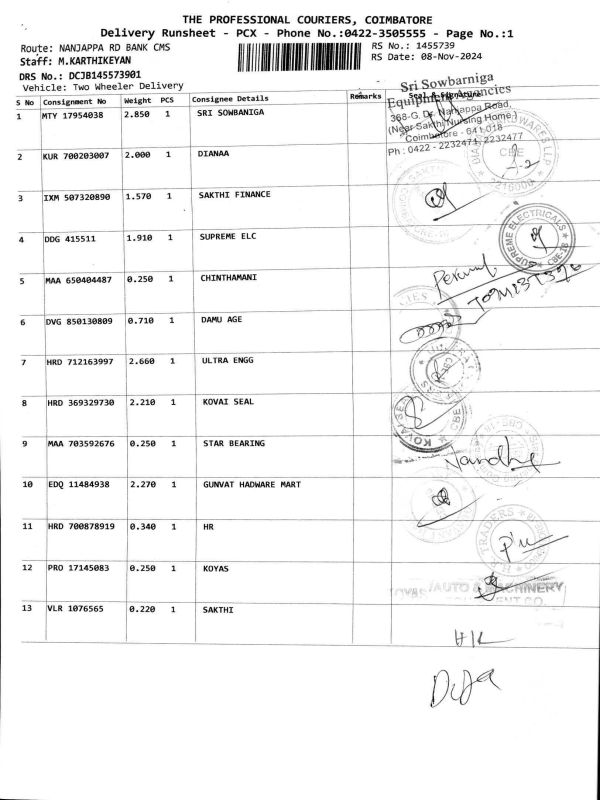 THE PROFESSIONAL COURIERS, COIMBATORE
Delivery Runsheet - PCX - Phone No.:0422-3505555 - Page No.:1
Route: NANJAPPA RD BANK CMS
RS No.: 1455739
Staff: M.KARTHIKEYAN
RS Date: 08-Nov-2024
DRS No.: DCJB145573901
Vehicle: Two Wheeler Delivery
S No Consignment No Weight PCS Consignee Details Remarks Seal & Signature
1 MTY 17954038 2.850 1 SRI SOWBANIGA
Sri Sowbarniga
Equipment Agencies
368-G, Dr. Nanjappa Road,
(Near Sakthi Nursing Home)
Coimbatore - 641 018
Ph : 0422 - 2232471, 2232477
2 KUR 700203007 2.000 1 DIANAA
CBE
3 IXM 507320890 1.570 1 SAKTHI FINANCE
4 DDG 415511 1.910 1 SUPREME ELC
SUPREME ELECTRICALS
CBE-18
5 MAA 650404487 0.250 1 CHINTHAMANI
6 DVG 850130809 0.710 1 DAMU AGE
7 HRD 712163997 2.660 1 ULTRA ENGG
8 HRD 369329730 2.210 1 KOVAI SEAL
KOVAI SEAL
CBE
9 MAA 703592676 0.250 1 STAR BEARING
10 EDQ 11484938 2.270 1 GUNVAT HADWARE MART
11 HRD 700878919 0.340 1 HR
TRADERS
12 PRO 17145083 0.250 1 KOYAS
AUTO & MACHINERY
13 VLR 1076565 0.220 1 SAKTHI